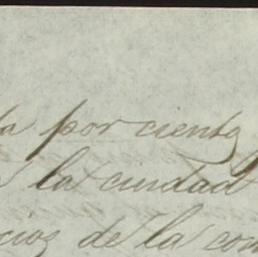 ta por ciento
la ciudad
cios de la com